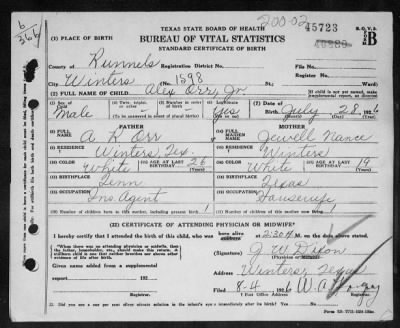 TEXAS STATE BOARD OF HEALTH
BUREAU OF VITAL STATISTICS
STANDARD CERTIFICATE OF BIRTH
200-02
45723
B
6
366
(1) PLACE OF BIRTH
County of Runnels Registration District No. File No.
Winters 1598 (No. St. Ward)
(2) FULL NAME OF CHILD Alex Orr, Jr.
If child is not yet named, make supplemental report, as directed
(3) Sex of Child Male (4) Twin, triplet, or other (5) Number in order of birth (6) Legitimate Yes (7) Date of Birth July 28, 1926
(To be answered in event of plural births)
FATHER
MOTHER
FULL NAME A K Orr
FULL MAIDEN NAME Jewell Nance
RESIDENCE Winters, Tex.
RESIDENCE Winters
COLOR White AGE AT LAST BIRTHDAY 26
COLOR White AGE AT LAST BIRTHDAY 19
BIRTHPLACE Tenn
BIRTHPLACE Texas
OCCUPATION Ins. Agent
OCCUPATION Housewife
Number of children born to this mother, including present birth 1
Number of children of this mother now living 1
(22) CERTIFICATE OF ATTENDING PHYSICIAN OR MIDWIFE
I hereby certify that I attended the birth of this child, who was born alive at 2:30 A M. on the date above stated.
When there was no attending physician or midwife, then the father, householder, etc., should make this return. A stillborn child is one that neither breathes nor shows other evidence of life after birth.
(Signature) J W Dixon
Given name added from a supplemental report 192
Address Winters, Texas
8-4 1926
Post Office Address Registrar